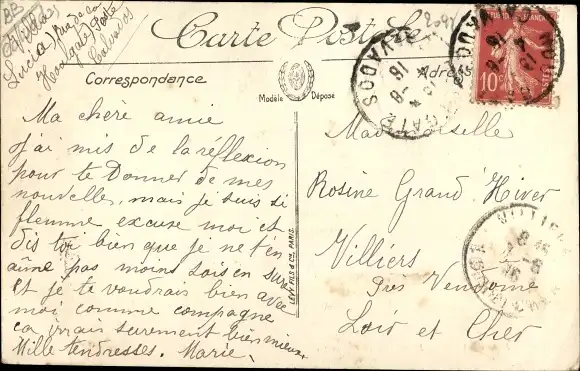 Villa
Lucia
Houlgate Poste
Calvados
2094
Carte Postale
Correspondance
Adresse
Modèle Déposé
10c
CALVADOS
Ma chère amie
j'ai mis de la réflexion
pour te donner de mes
nouvelles, mais je suis si
flemme excuse moi et
dis toi bien que je ne t'en
aime pas moins sois en sure
et je te voudrais bien avec
moi comme compagne
ça irais surement bien mieux
Mille tendresses. Marie.
LEVY FILS & Cie, PARIS.
Mademoiselle
Rosine Grand'Hiver
Villiers
Près Vendome
Loir et Cher